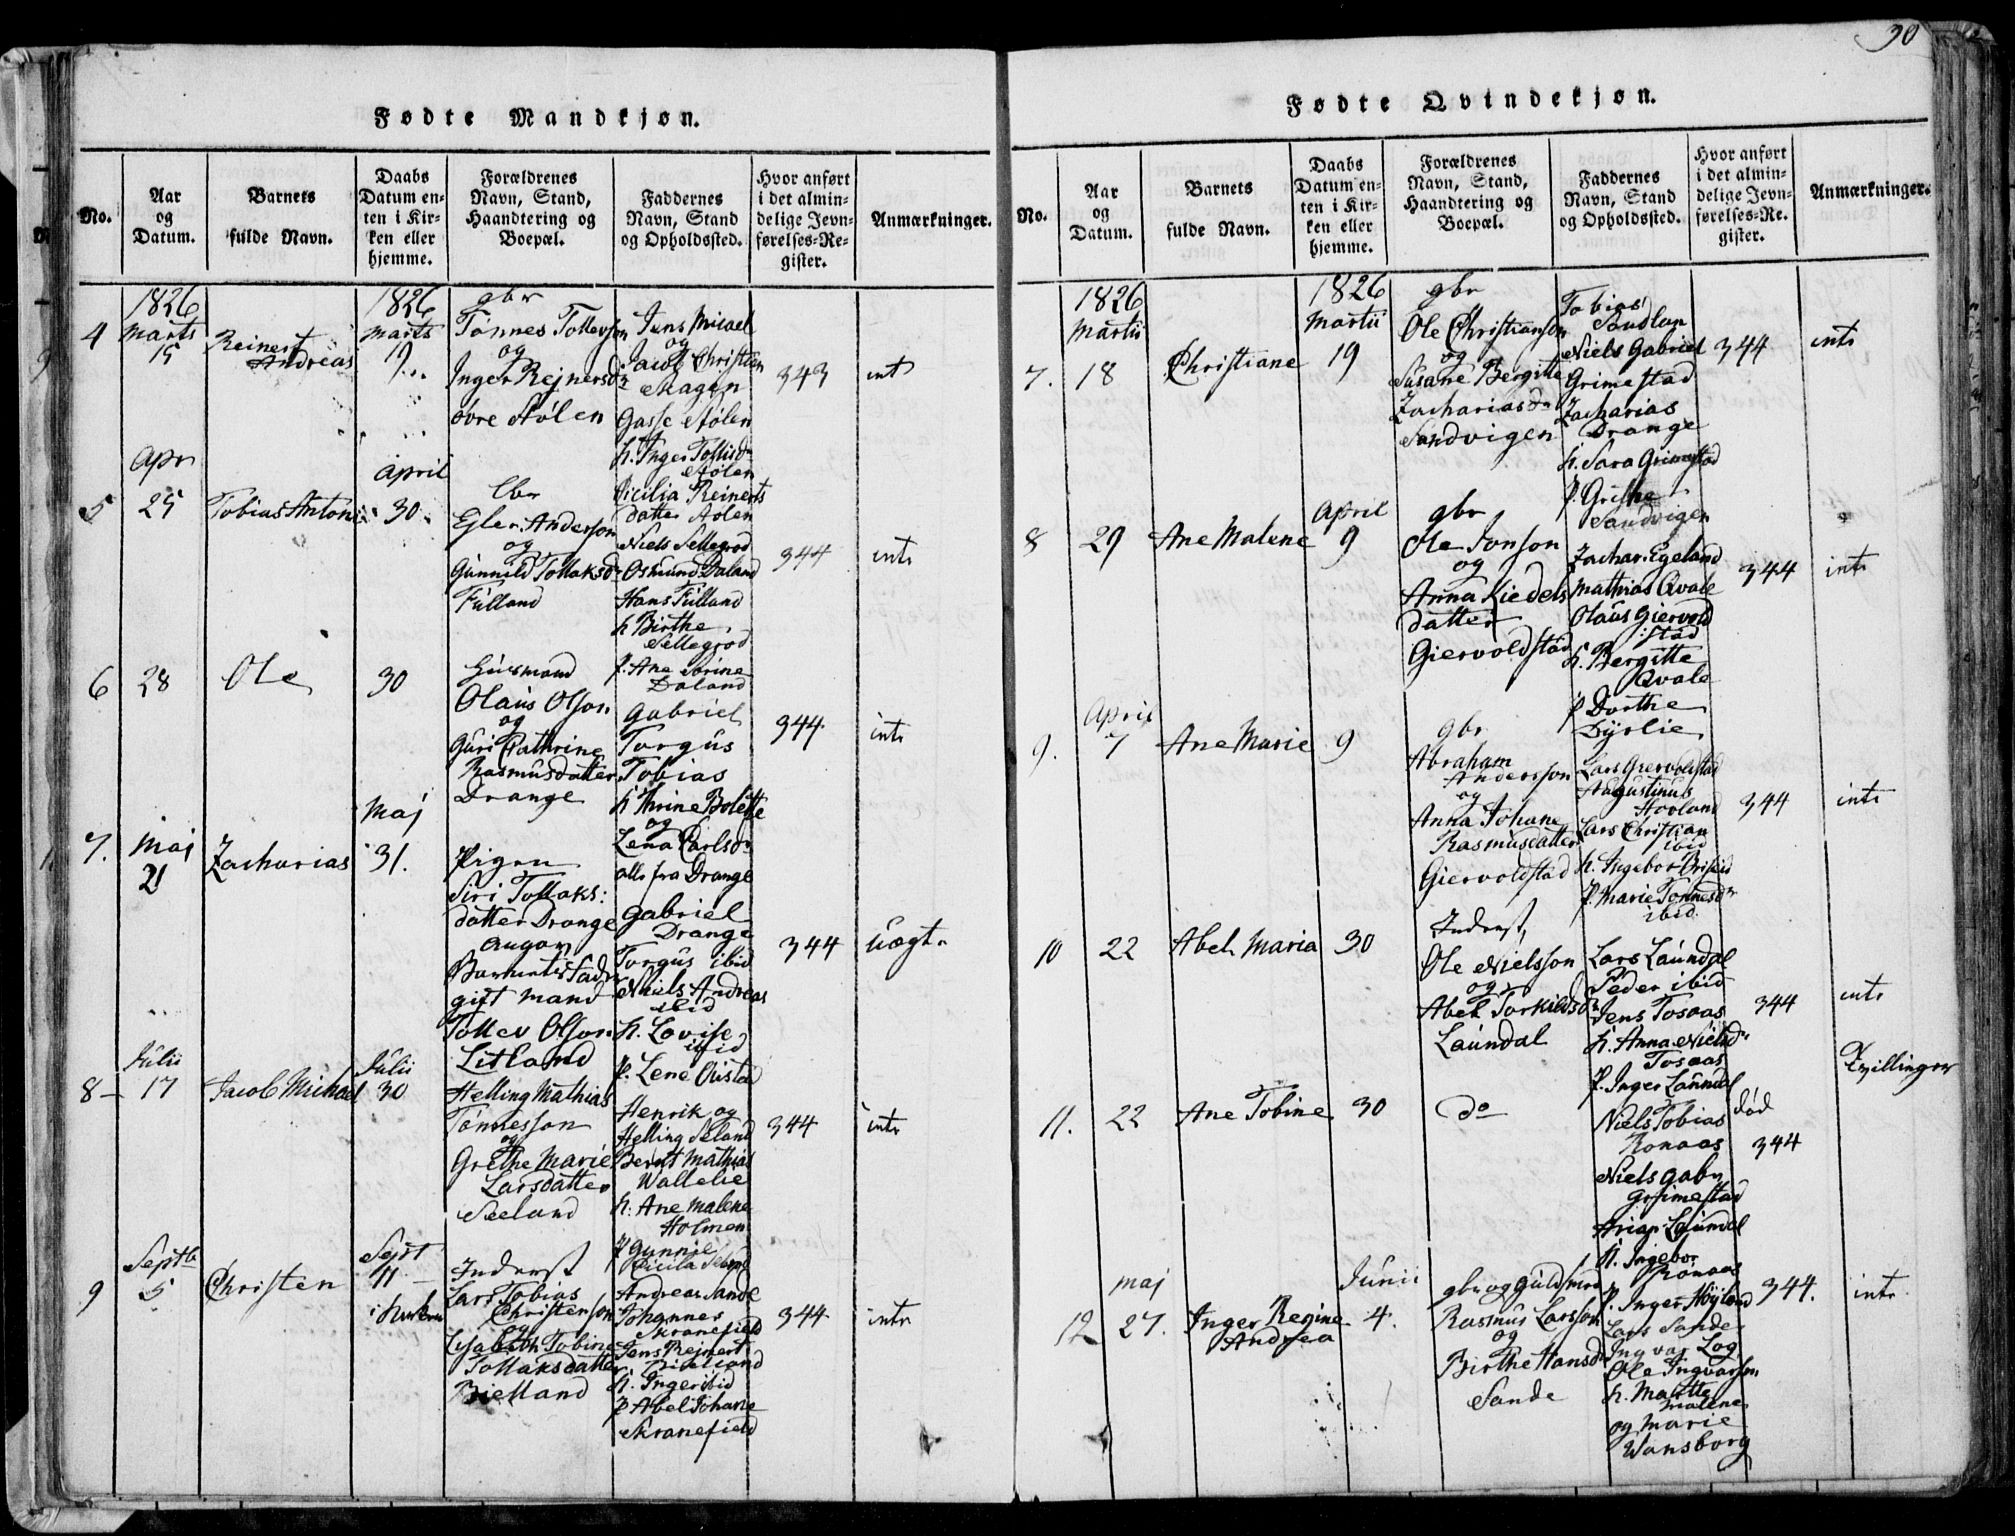 30
Fødte Mandkjøn.
No.
Aar
og
Datum.
Barnets
fulde Navn.
Daabs
Datum en-
ten i Kir-
ken eller
hjemme.
Forældrenes
Navn, Stand,
Haandtering og
Boepæl.
Faddernes
Navn, Stand
og Opholdssted.
Hvor anført
i det almin-
delige Jevn-
førelses-Re-
gister.
Anmærkninger.
4
1826
Marts
15
Reinert
Andreas
1826
Marts
19
gbr
Tønnes Tollevson
og
Inger Rejnersdr
øvre Stølen
Jens Micael
og
Jacob Christian
Skagen
Gasse Stølen
h. Inger Tollisdr
Stølen
Cicilia Reinerts
datter Stølen
343
int
5
Apr
25
Tobias Antoni
April
30
lbr
Egler Anderson
og
Gunnild Tollaksdr
Fulland
Niels Sellegrod
Osmund Daland
Hans Fulland
h Birthe
Sellegrod
p. Ane Sorine
Daland
344
intr
6
28
Ole
30
Huusmand
Olaus Olson
og
Guri Cathrine
Rasmusdatter
Drange
Gabriel
Torgus
Tobias
h Thrine Bolette
og
Lena Carlsdr
alle fra Drange
344
intr
7.
Maj
21
Zacharias
Maj
31.
Pigen
Siri Tollaks:
datter Drange
angav
Barnets Fader
gift mand
Tollev Olson
Litland
Gabriel
Drange
Torgus ibid
Niels Andreas
ibid
h. Lovise
ibid
p. Lene Qvistad
344
Uægt.
8
Julii
17
Jacob Michael
Julii
30
Helling Mathias
Tønnesson
og
Grethe Marie
Larsdatter
Seeland
Henrik og
Helling Seland
Bernt Mathias
Wallelie
h. Ane Malene
Holmen
p Gunnie
Cicilia Seland
344
intr
9
Septb
5
Christen
Sept
11
i Kirken
Inderst
Lars Tobias
Christenson
og
Lisabeth Tobine
Tollaksdatter
Bielland
Andreas Sande
Johannes
Skranefield
Jens Reinert
Bielland
h. Inger ibid
p Abel Johane
Skranefield
344
intr
Fødte Qvindekjøn.
No.
Aar
og
Datum.
Barnets
fulde Navn.
Daabs
Datum en-
ten i Kir-
ken eller
hjemme.
Forældrenes
Navn, Stand,
Haandtering og
Boepæl.
Faddernes
Navn, Stand
og Opholdssted.
Hvor anført
i det almin-
delige Jevn-
førelses-Re-
gister.
Anmærkninger.
7.
1826
Martii
18
Christiane
1826
Martii
19
gbr
Ole Christianson
og
Susane Bergitte
Zachariasdr
Sandvigen
Tobias
Soudlan
Niels Gabriel
Grimestad
Zacharias
Drange
h. Sara Grimestad
p. Grethe
Sandvigen
344
intr
8
29
Ane Malene
April
9
gbr
Ole Jonson
og
Anna Kiedels
datter
Giervoldstad
Zachar. Egeland
Mathias Qvale
Olaus Giervold
stad
h. Bergitte
Qvale
p Dorthe
Dyrlie
344
intr
9.
April
7
Ane Marie
9
gbr
Abraham
Andersson
og
Anna Johane
Rasmusdatter
Giervoldstad
Lars Giervoldstad
Augustinus
Hovland
Lars Christian
ibid
h. Ingebor
p. Marie Tønnesdr
ibid
344
intr
10
22
Abel Maria
30
Inderst
Ole Nielsson
og
Abel Torkildsdr
Laundal
Lars Laundal
Peder ibid
Jens Tosaas
h. Anna Nielsdr
Tosaas
p. Inger Laundal
344
intr
Tvillinger
11.
22
Ane Tobine
30
do
Niels Tobias
Ronaas
Niels Gabr
Grimestad
Laundal
h. Ingebor
Ronaas
p. Inger Høyland
død
344
12
Maj
27.
Inger Regine
Andrea
Junii
4.
gbr og Guldsmed
Rasmus Larsson
og
Birthe Hansdr
Sande
Lars Sande
Ingvar Log
Ole Ingvarson
h. Marthe
Malene
og Marie
Wansborg
344.
intr.